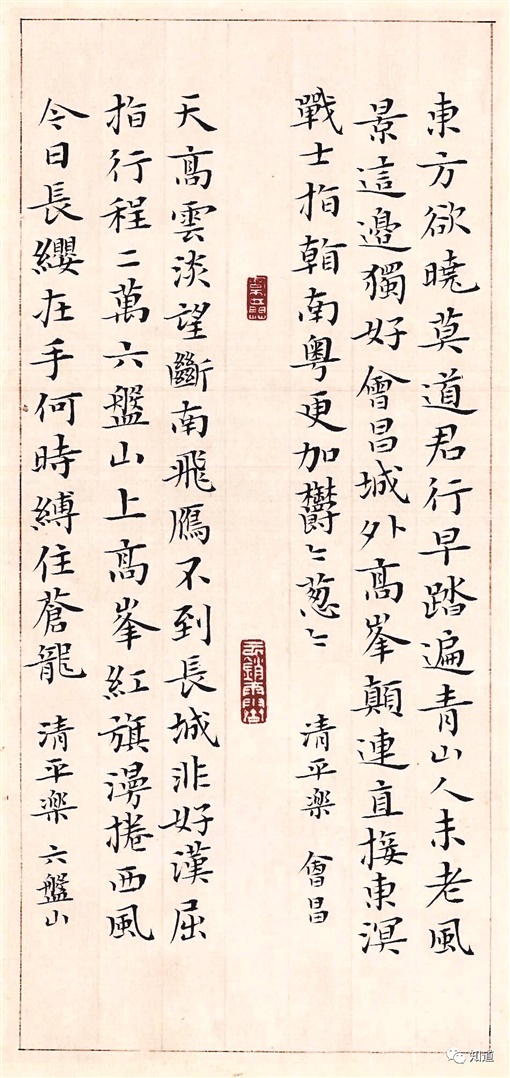 東方欲曉莫道君行早踏遍青山人未老風
景這邊獨好會昌城外高峯顛連直接東溟
戰士指看南粤更加欝〻葱〻 清平楽 會昌
天高雲淡望斷南飛鴈不到長城非好漢屈
指行程二萬六盤山上高峯紅旗漫捲西風
今日長纓在手何時縛住蒼龍 清平楽 六盤山
知道